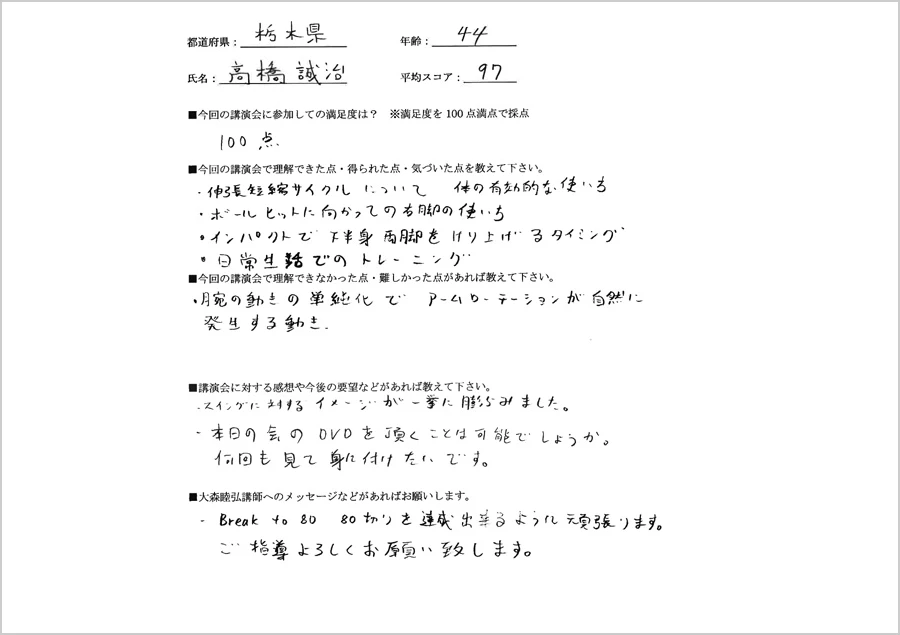 都道府県： 栃木県 年齢： 44
氏名： 高橋 誠治 平均スコア： 97
■今回の講演会に参加しての満足度は？ ※満足度を100点満点で採点
100 点.
■今回の講演会で理解できた点・得られた点・気づいた点を教えて下さい。
・伸張短縮サイクル について 体の有効的な使い方
・ボールヒットに向かっての右脚の使い方
・インパクトで 下半身 両脚を けり上げるタイミング
・日常生活でのトレーニング
■今回の講演会で理解できなかった点・難しかった点があれば教えて下さい。
・腕の動きの単純化で アームローテーションが自然に
発生する動き.
■講演会に対する感想や今後の要望などがあれば教えて下さい。
・スイングに対するイメージが一挙に膨らみました。
・本日の会のDVDを頂くことは可能でしょうか。
何回も見て身に付けたいです。
■大森睦弘講師へのメッセージなどがあればお願いします。
・Break to 80 80切りを達成出来るように頑張ります。
ご指導よろしくお願い致します。